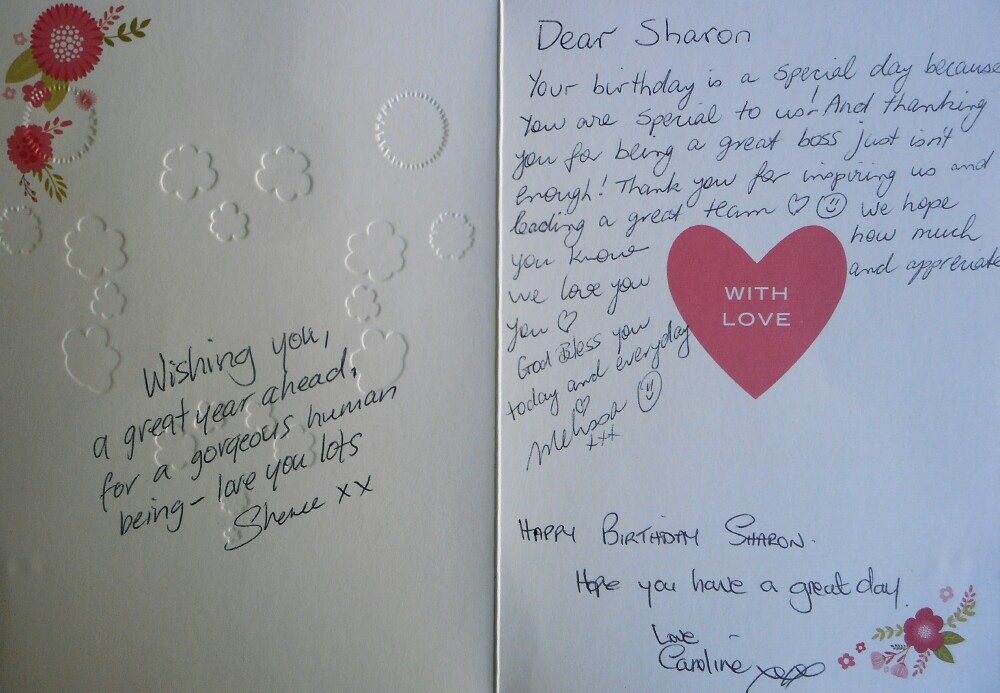 Wishing you,
a great year ahead,
for a gorgeous human
being - love you lots
xx
Dear Sharon
Your birthday is a special day because
you are special to us! And thanking
you for being a great boss just isn't
enough! Thank you for inspiring us and
leading a great team ♡ ☺ we hope
you know how much
we love you and appreciate
you ♡
God Bless you
today and everyday
♡ ☺
Melissa
xxx
WITH
LOVE
HAPPY BIRTHDAY SHARON.
Hope you have a great day.
Love
Caroline xoxo